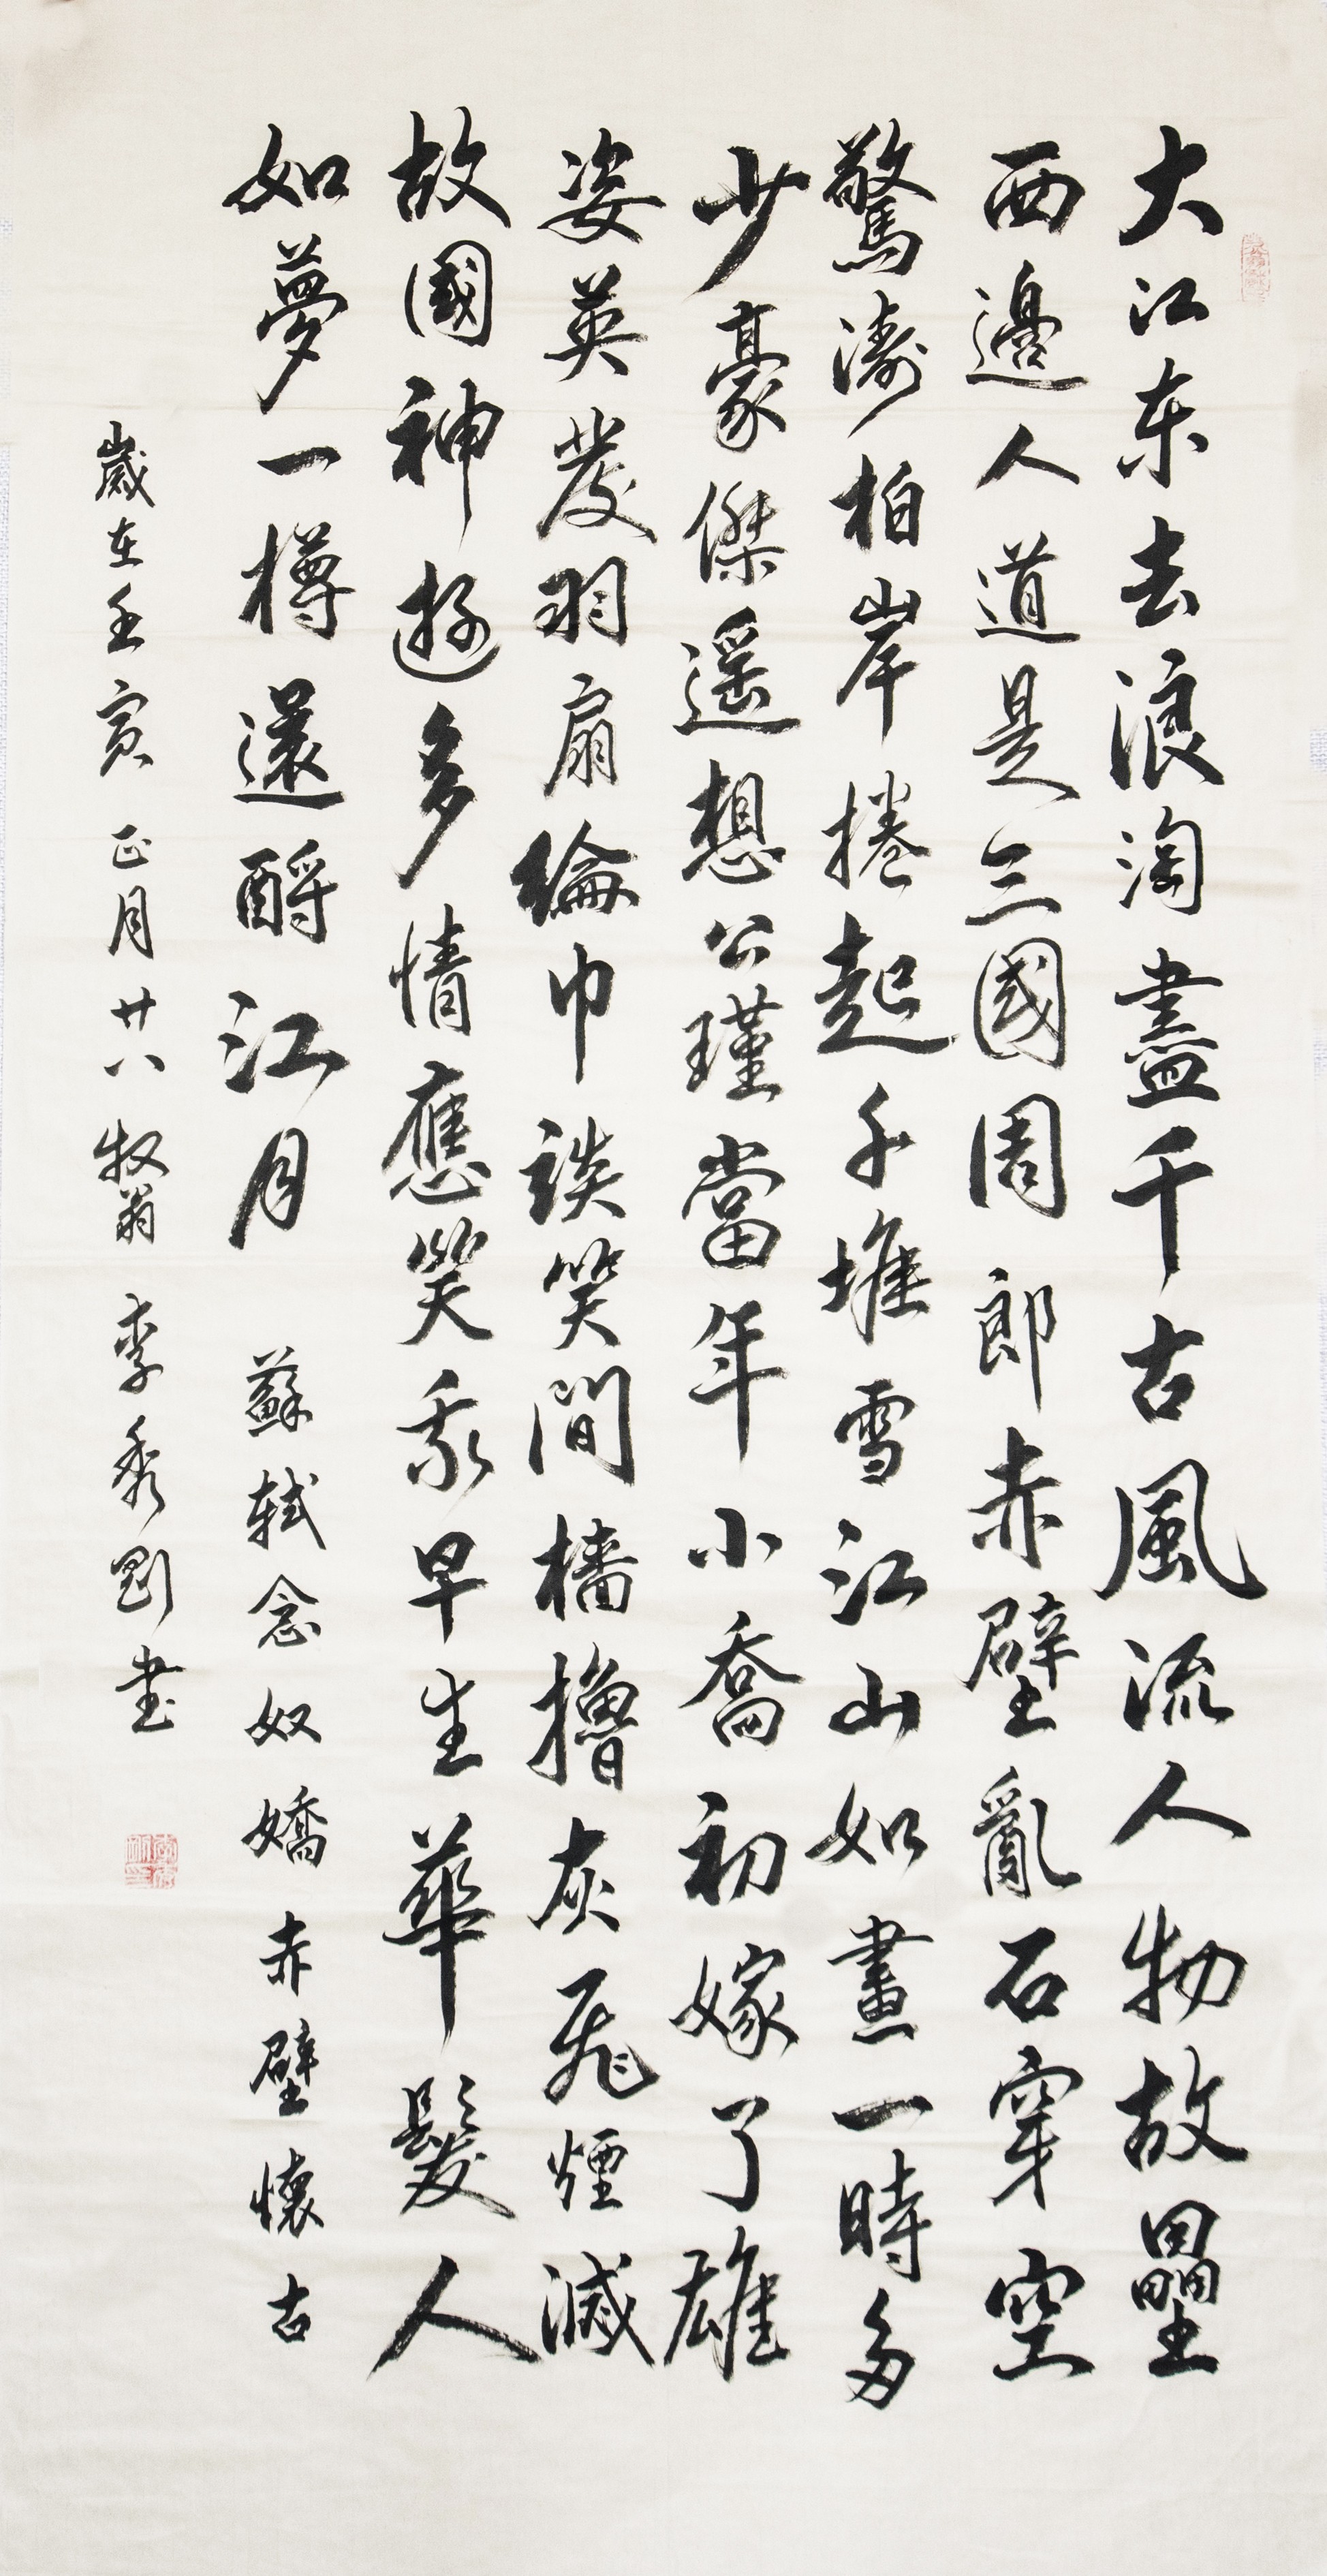 大江东去浪淘盡千古風流人物故壘
西邊人道是三國周郎赤壁亂石穿空
驚濤柏岸捲起千堆雪江山如畫一時多
少豪傑遥想公瑾當年小喬初嫁了雄
姿英發羽扇綸巾談笑間檣擼灰飛煙滅
故國神遊多情應笑我早生華髮人
如夢一樽還酹江月 蘇軾念奴嬌赤壁懷古
歲在壬寅正月廿八牧翁李秀剛书